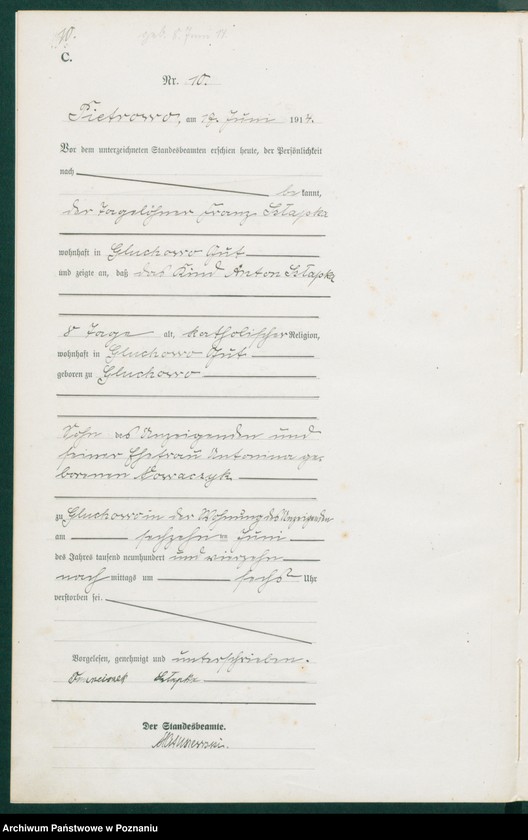 10.
geb. 8. Juni 14.
C.
Nr. 10.
Pietrowo, am 17. Juni 1914.
Vor dem unterzeichneten Standesbeamten erschien heute, der Persönlichkeit
nach
bekannt,
der Tagelöhner Franz Szłapka
wohnhaft in Gluchowo Gut
und zeigte an, daß das Kind Anton Szłapka
8 Tage alt, katholischer Religion,
wohnhaft in Gluchowo Gut
geboren zu Gluchowo
Sohn des Anzeigenden und
seiner Ehefrau Antonina ge-
borenen
zu Gluchowo in der Wohnung des Anzeigenden
am sechzehn ten Juni
des Jahres tausend neunhundert und vierzehn
nach mittags um sechs Uhr
verstorben sei.
Vorgelesen, genehmigt und unterschrieben.
Franciszek Szłapka
Der Standesbeamte.
Archiwum Państwowe w Poznaniu